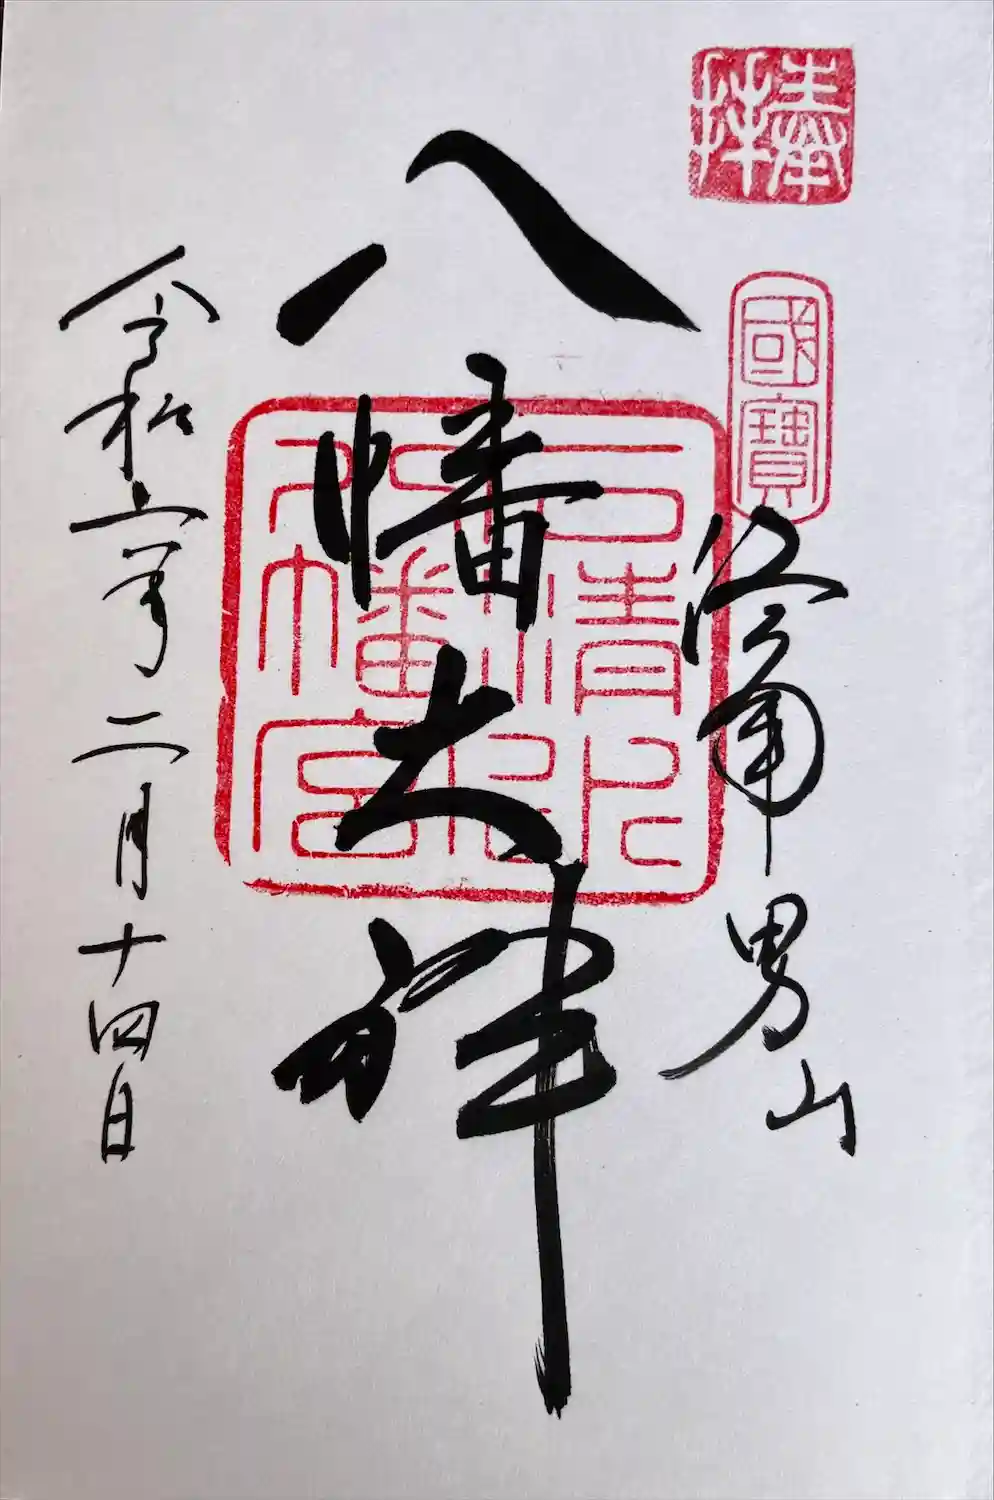 奉拝
國寶
洛南男山
八幡大神
石清水八幡宮
令和六年二月十四日